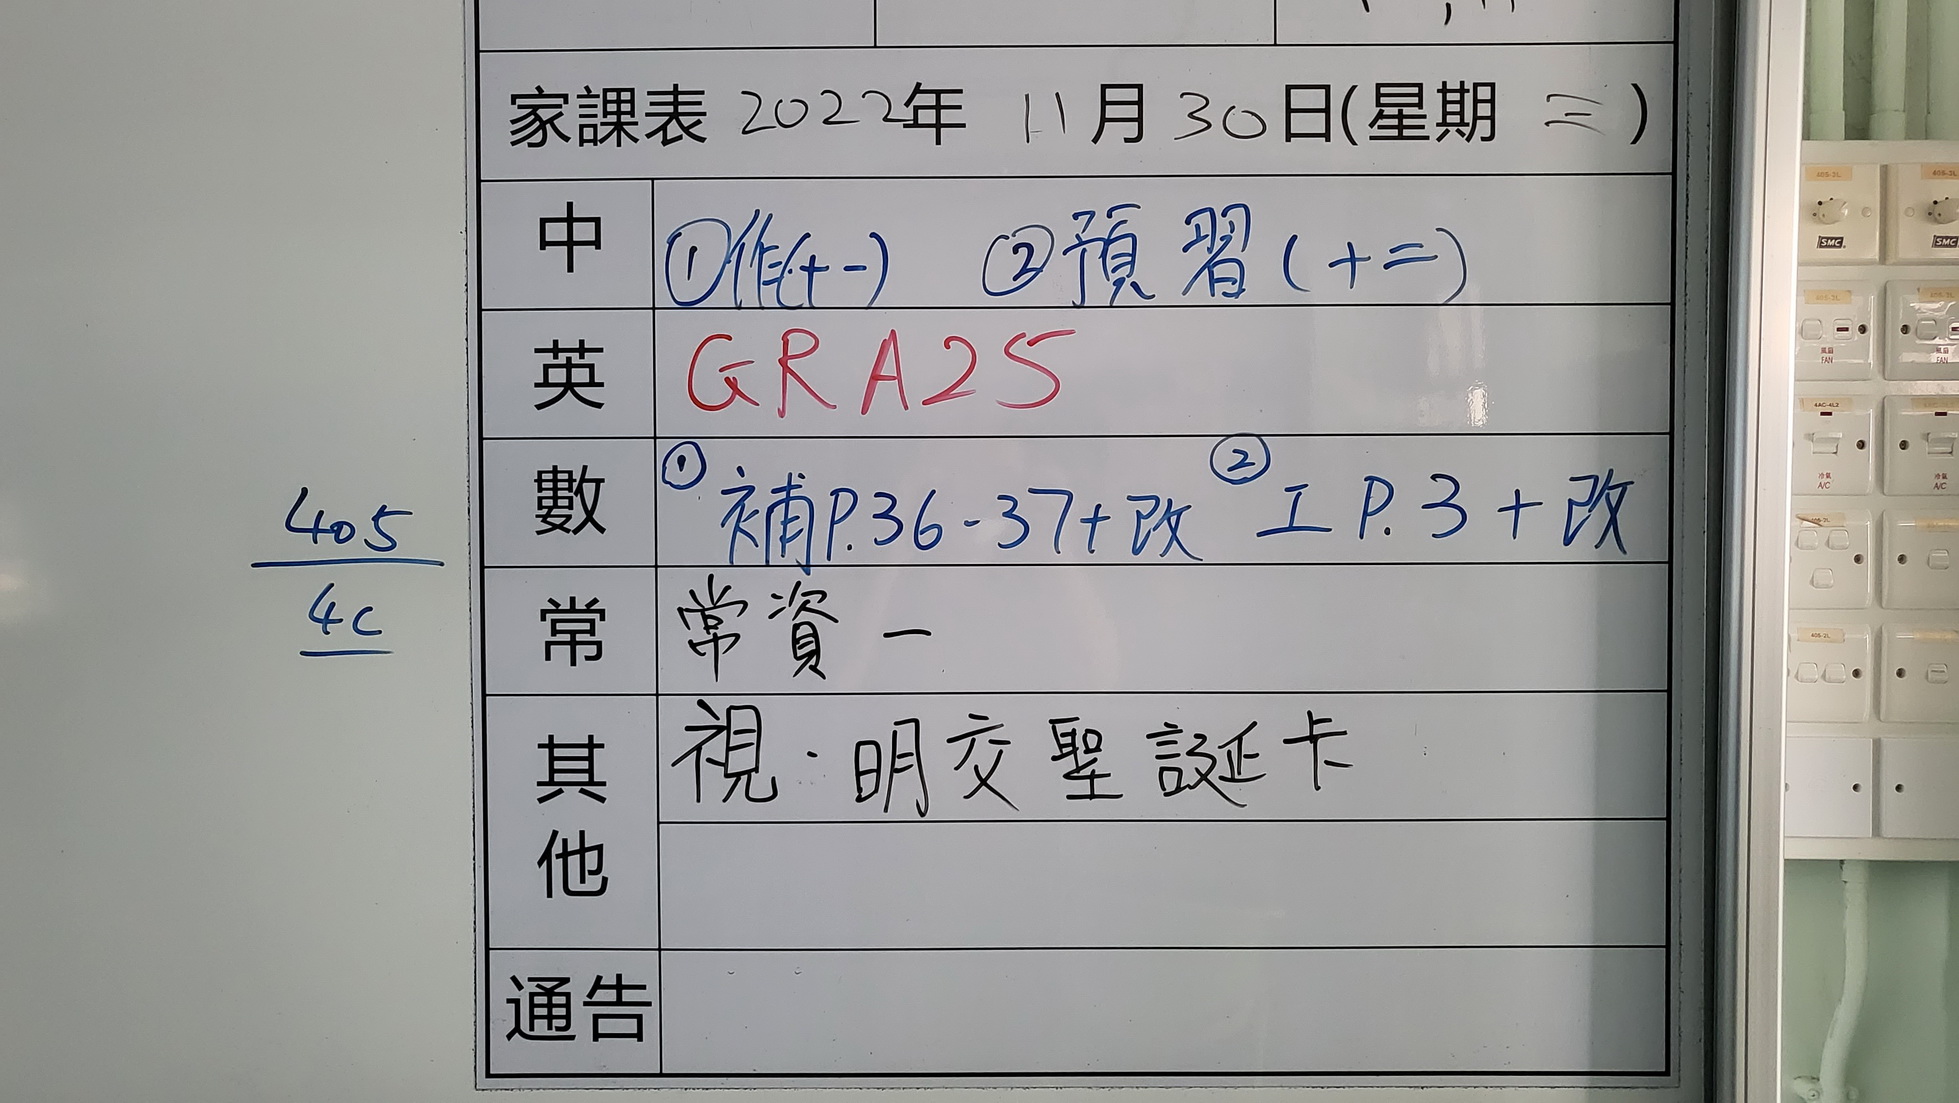 家課表 2022年 11月30日(星期 三)
中 ①作(十一) ②預習(十二)
英 GRA25
數 ①補P.36-37+改 ②工P.3+改
405
4C
常 常資一
其他 視·明交聖誕卡
通告
405-2L
SMC
SMC
風扇
FAN
FAN
4AC-4L2
冷氣
A/C
冷氣
A/C
405-2L